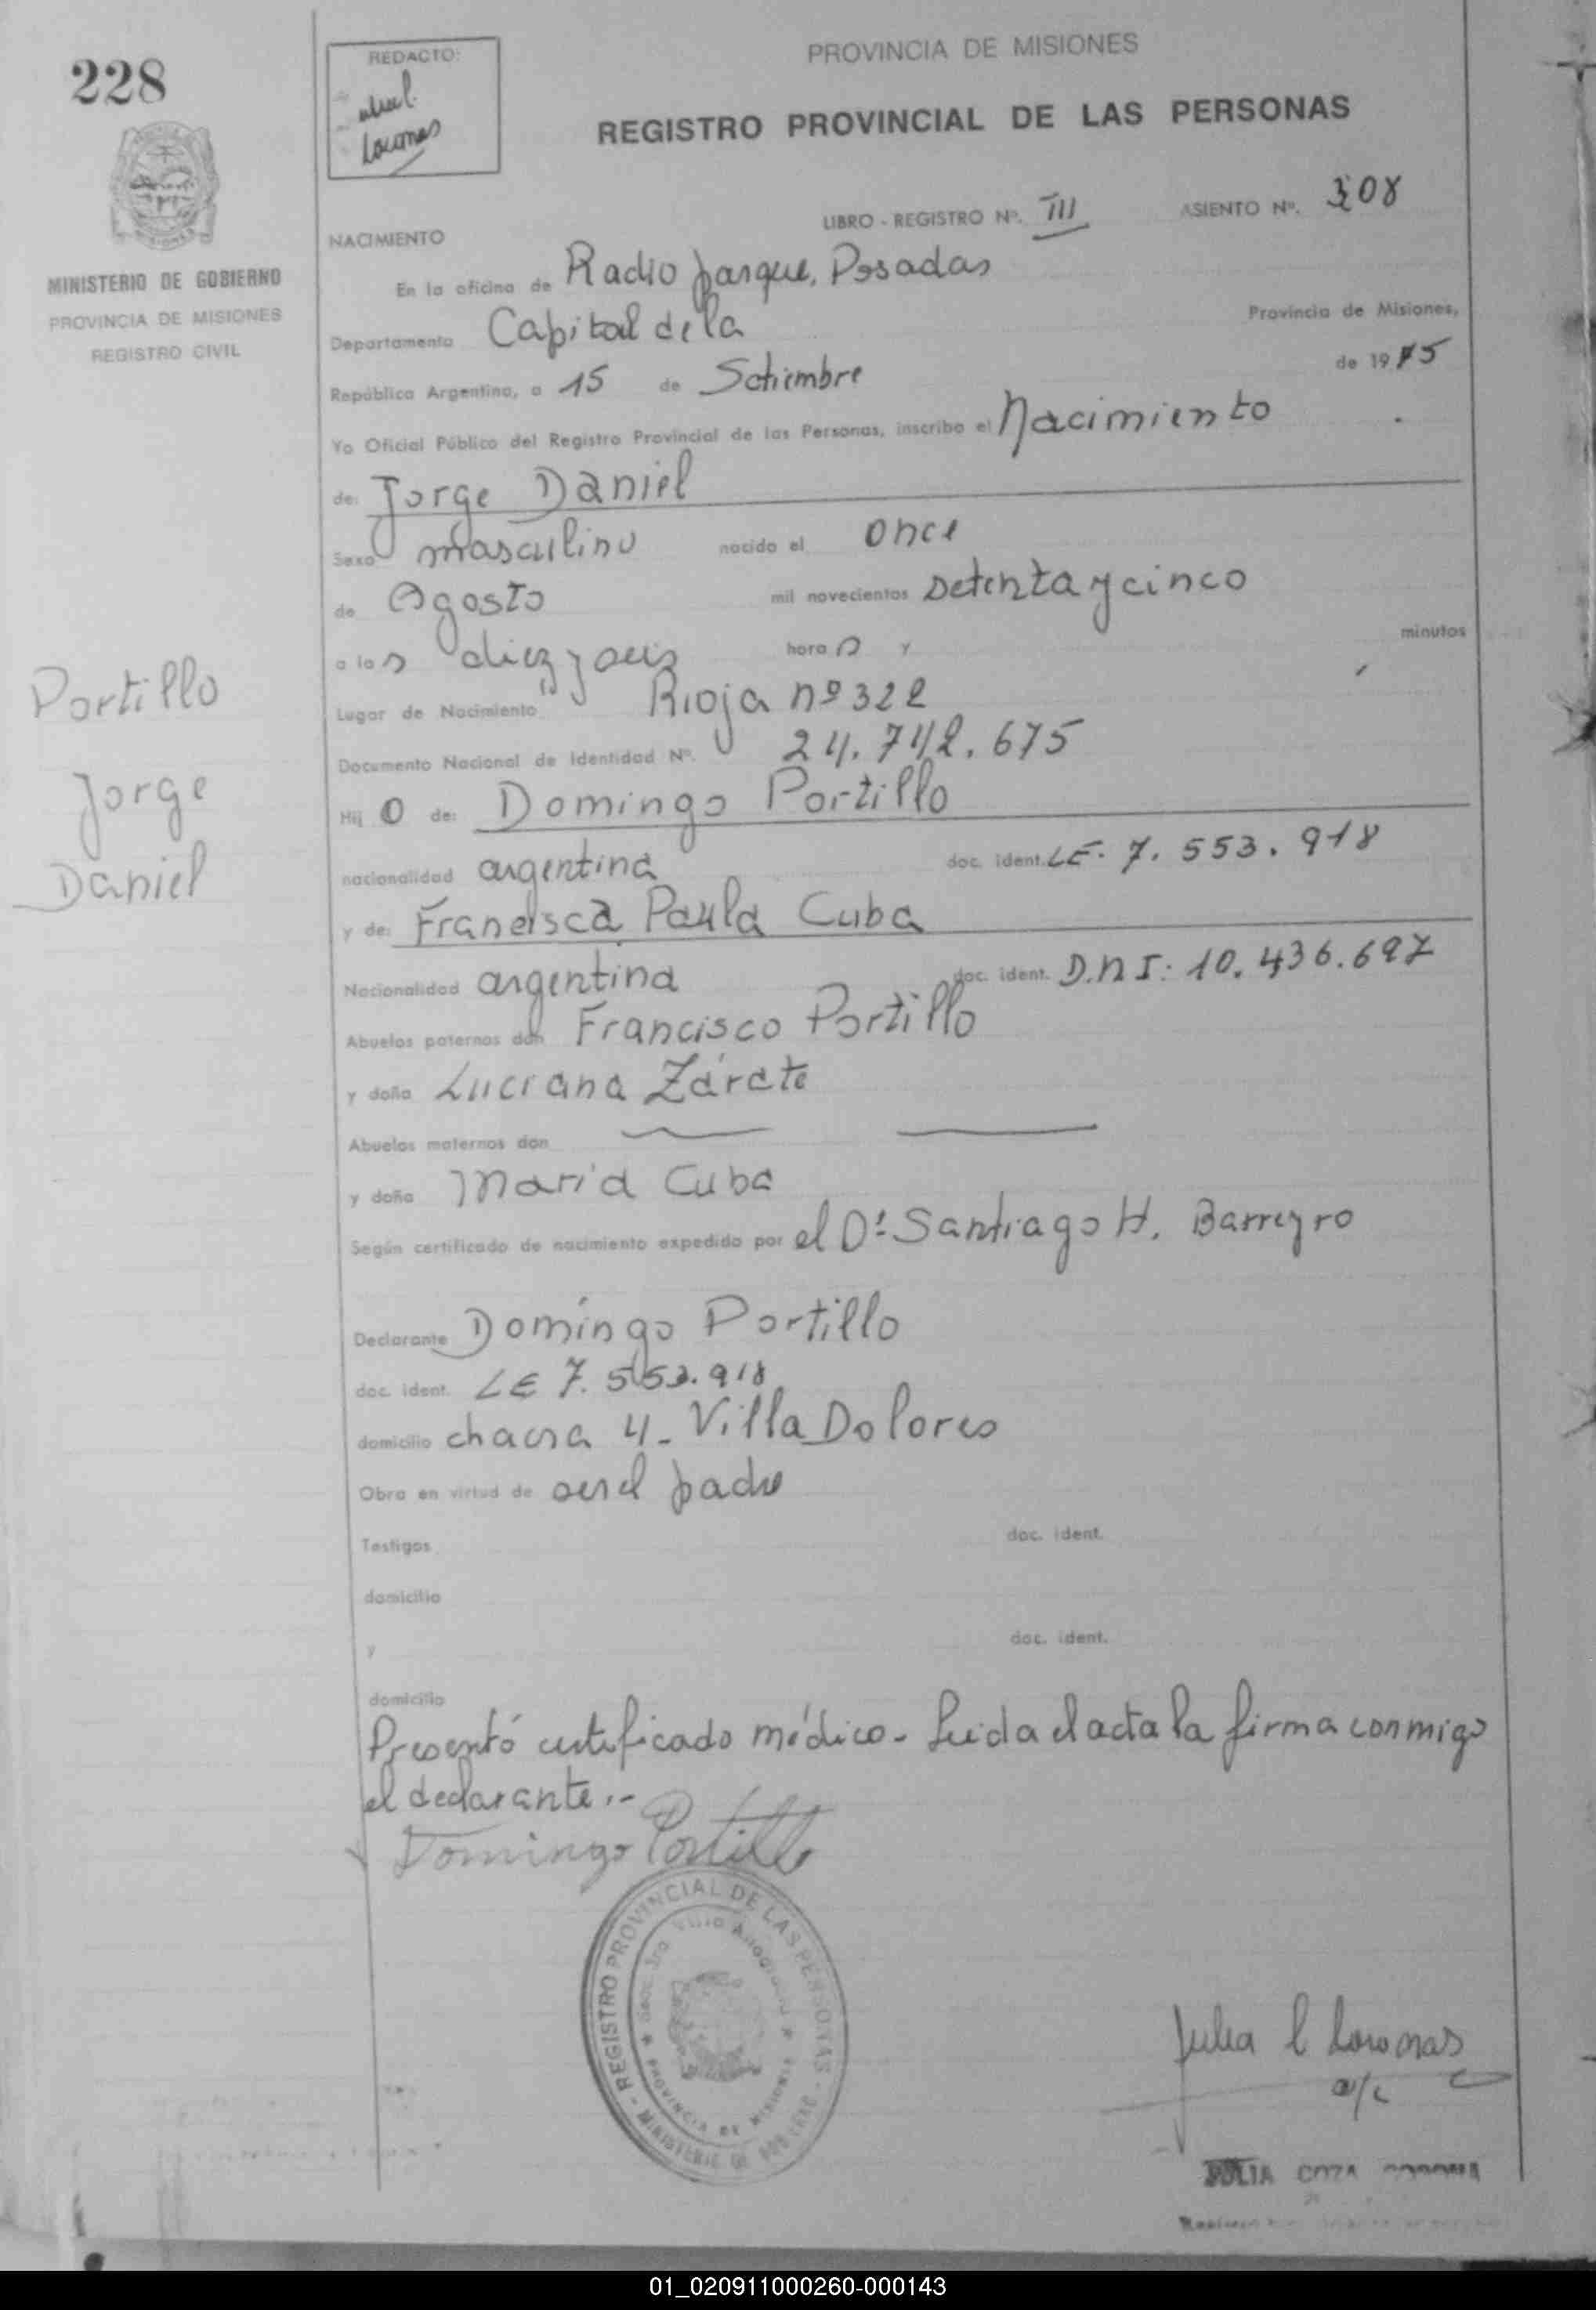 228
REDACTO:
PROVINCIA DE MISIONES
REGISTRO PROVINCIAL DE LAS PERSONAS
MINISTERIO DE GOBIERNO
PROVINCIA DE MISIONES
REGISTRO CIVIL
LIBRO - REGISTRO Nº. III ASIENTO Nº. 308
NACIMIENTO
En la oficina de Radio parque, Posadas
Departamento Capital de la Provincia de Misiones,
República Argentina, a 15 de Setiembre de 1975
Yo Oficial Público del Registro Provincial de las Personas, inscribo el Nacimiento
de: Jorge Daniel
Sexo masculino nacido el once
de Agosto mil novecientos setenta y cinco
a las diez y seis horas y minutos
Lugar de Nacimiento Rioja nº 322
Documento Nacional de Identidad Nº. 24.742.675
Portillo
Jorge
Daniel
Hijo de: Domingo Portillo
nacionalidad argentina doc. ident. LE. 7.553.918
y de: Francisca Paula Cuba
Nacionalidad argentina doc. ident. D.N I: 10.436.697
Abuelos paternos don Francisco Portillo
y doña Luciana Zárate
Abuelos maternos don
y doña María Cuba
Según certificado de nacimiento expedido por el Dr. Santiago H. Barreyro
Declarante Domingo Portillo
doc. ident. LE 7.553.918
domicilio chacra 4 - Villa Dolores
Obra en virtud de ser el padre
Testigos doc. ident.
domicilio
y doc. ident.
domicilio
Presentó certificado médico - Leida el acta la firma conmigo
el declarante.-
Domingo Portillo
REGISTRO PROVINCIAL DE LAS PERSONAS
PROVINCIA DE MISIONES
Julia
a/c
JULIA
01_020911000260-000143